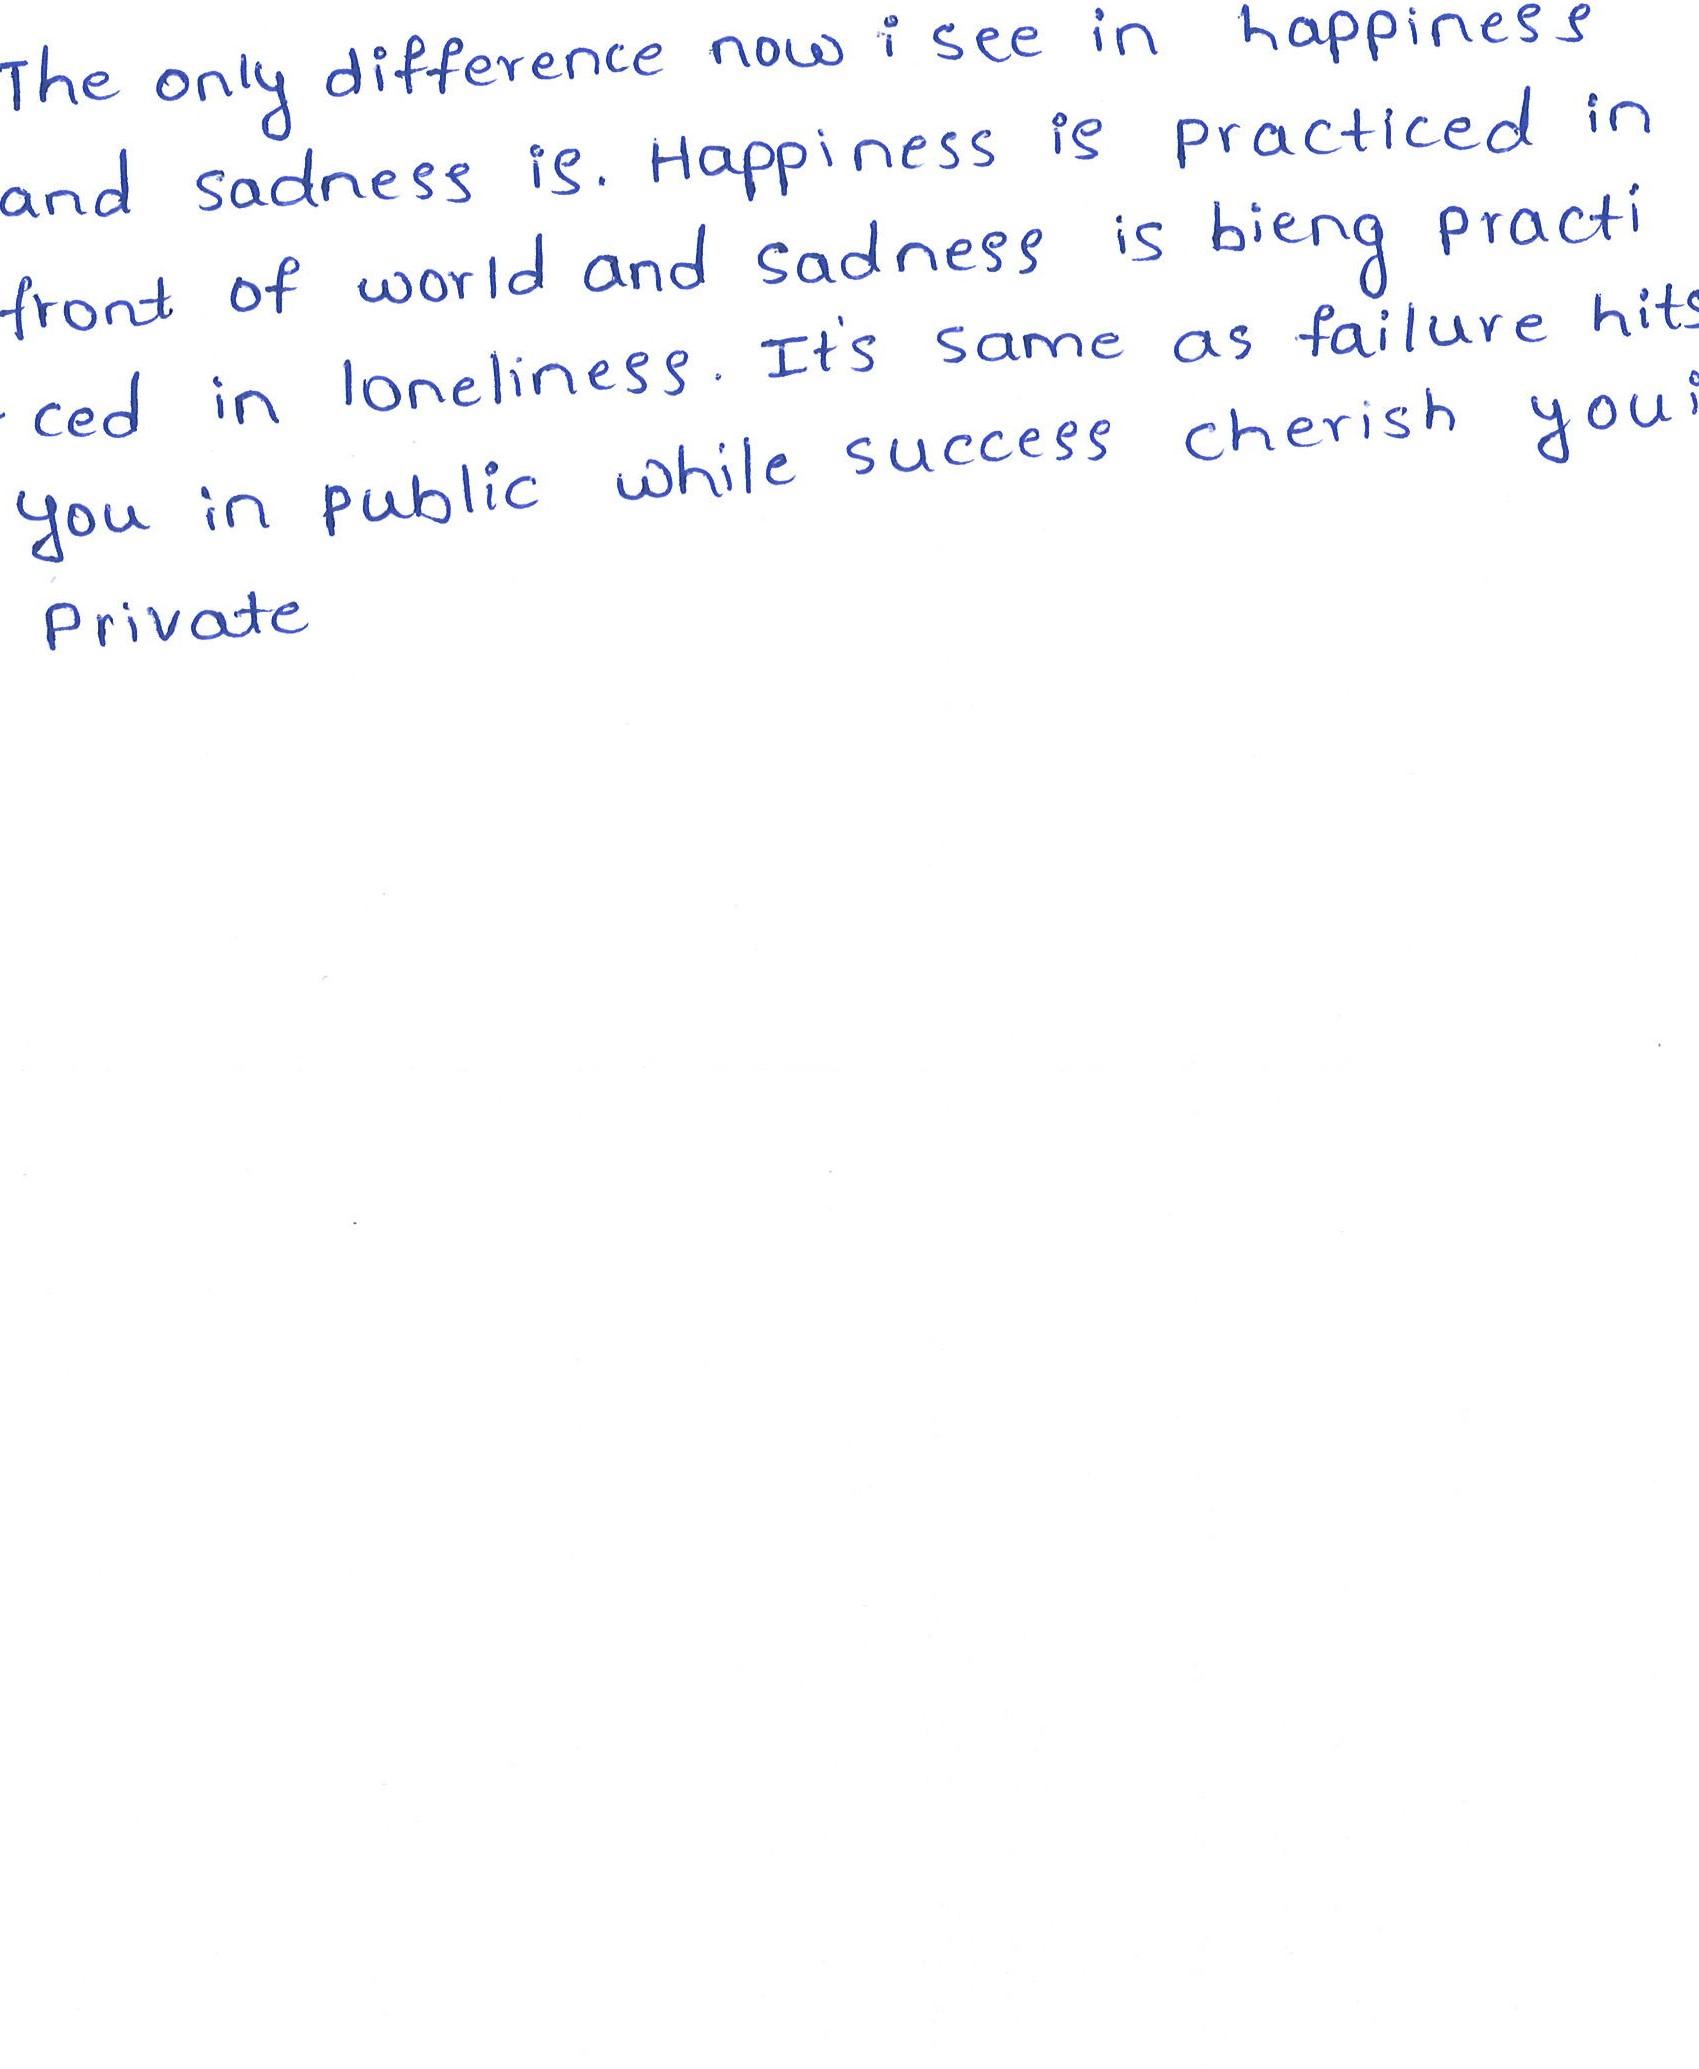 The only difference now i see in happiness
and sadness is. Happiness is practiced in
front of world and sadness is bieng practi
-ced in loneliness. It's same as failure hits
you in public while success cherish you i
Private